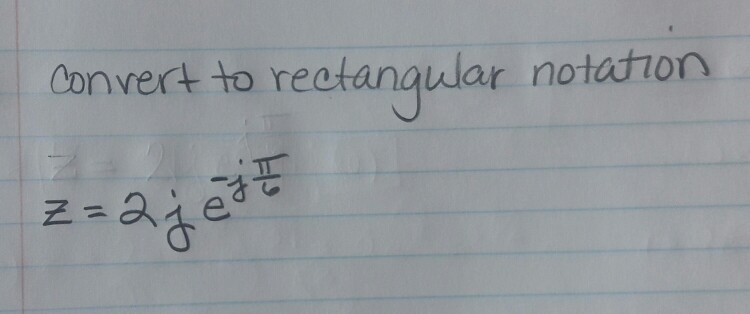 convert to rectangular notation
z = 2j e^{-j π/6}